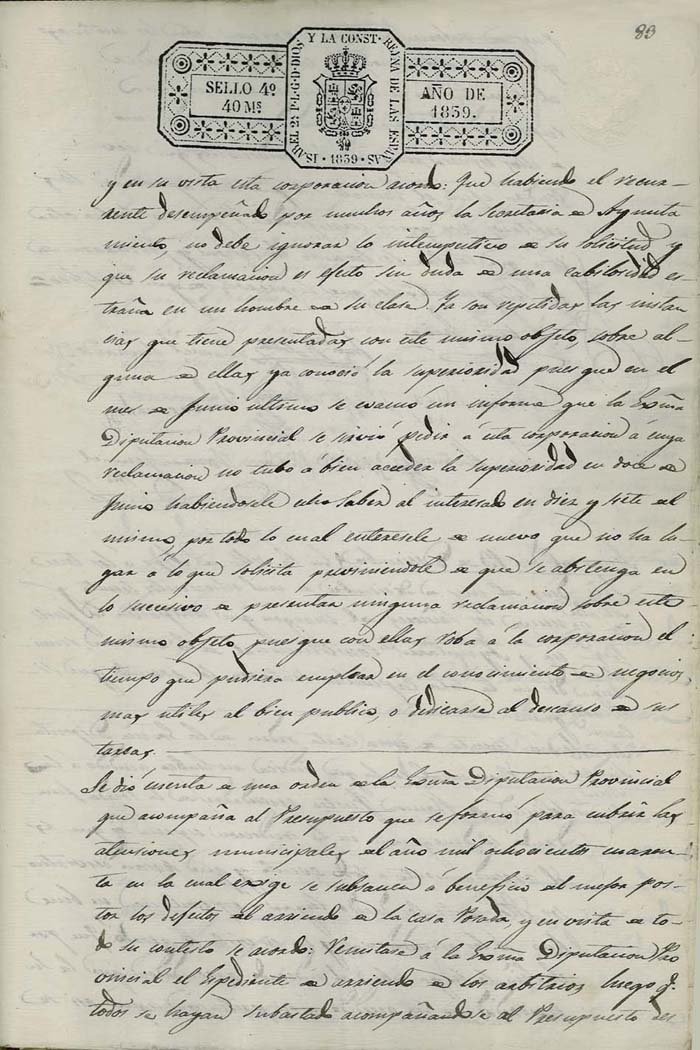 83
ISABEL 2ª P. L. G. D. DIOS Y LA CONST. REYNA DE LAS ESPAÑAS
· 1839 ·
SELLO 4º
40 Mˢ
AÑO DE
1839.
y en su vista esta corporacion acordo: Que habiendo el recur-
rente desempeñado por muchos años la Secretaria de Ayunta
miento, no debe ignorar lo intempestivo de su solicitud y
que su reclamacion es efecto sin duda de una cabilosidad es-
traña en un hombre de su clase. Ya son repetidas las instan
cias que tiene presentadas con este mismo objeto, sobre al-
guna de ellas ya conoció la superioridad pues que en el
mes de Junio ultimo se evacuó un informe que la Exma
Diputacion Provincial se sirvió pedir á esta corporacion á cuya
reclamacion no tubo á bien acceder la superioridad en doce de
Junio habiendosele hecho saber al interesado en diez y siete del
mismo, por todo lo cual enteresele de nuevo que no ha lu-
gar á lo que solicita previniendole de que se abstenga en
lo succesivo de presentar ninguna reclamacion sobre este
mismo objeto, pues que con ellas roba á la corporacion el
tiempo que pudiera emplear en el conocimiento de negocios
mas utiles al bien publico, o dedicarse al descanso de sus
tareas.
Se dió cuenta de una orden de la Exma Diputacion Provincial
que acompaña al Presupuesto que se formó para cubrir las
atenciones municipales del año mil ochocientos cuaren
ta en la cual exige se subsane á beneficio del mejor pos-
tor los defectos del arriendo de la casa Posada, y en vista de to-
do su contesto se acordo: Remitase á la Exma Diputacion Pro
vincial el Expediente de arriendo de los arbitrios luego q.
todos se hayan subastado acompañandose al Presupuesto des